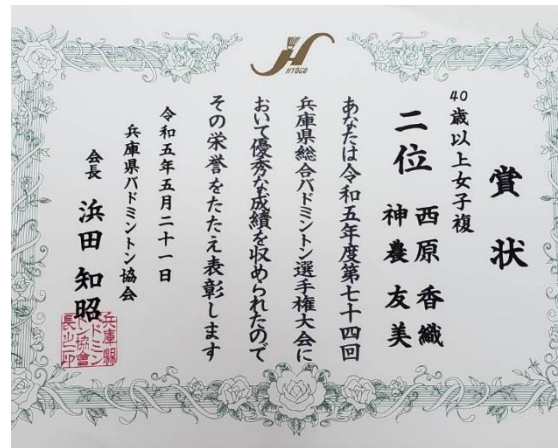 HYOGO
賞状
40歳以上女子複
二位
西原 香織
神農 友美
あなたは令和五年度第七十四回
兵庫県総合バドミントン選手権大会に
おいて優秀な成績を収められたので
その栄誉をたたえ表彰します
令和五年五月二十一日
兵庫県バドミントン協会
会長 浜田 知昭